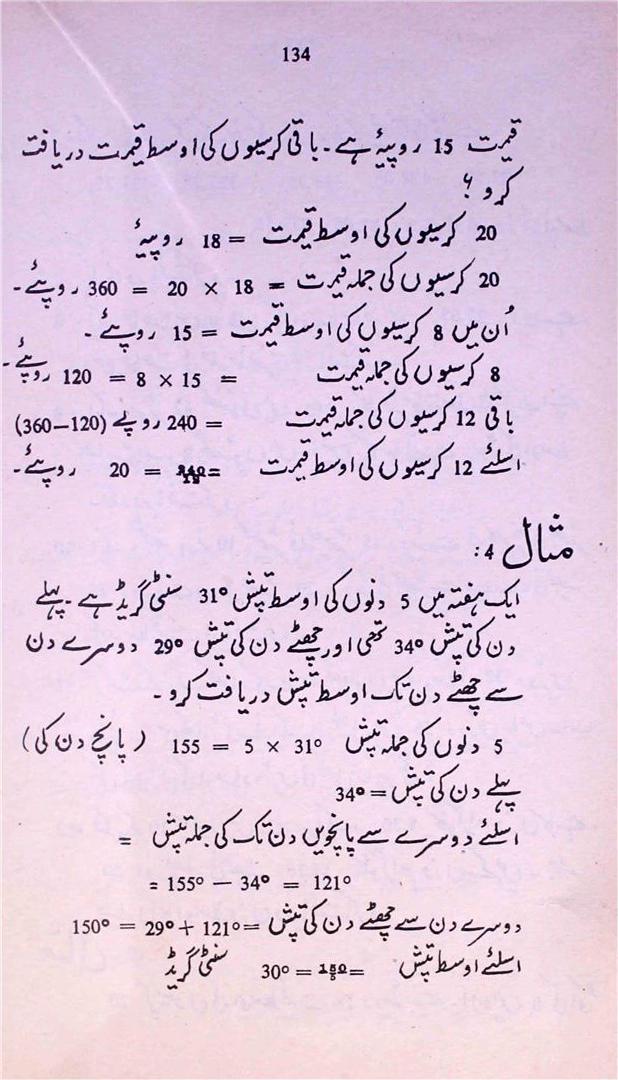 134
قیمت 15 روپیۂ ہے ۔ باقی کرسیوں کی اوسط قیمت دریافت
کرو ؟
20 کرسیوں کی اوسط قیمت = 18 روپیۂ
20 کرسیوں کی جملہ قیمت = 18 × 20 = 360 روپئے ۔
اُن میں 8 کرسیوں کی اوسط قیمت = 15 روپئے ۔
8 کرسیوں کی جملہ قیمت = 15 × 8 = 120 روپئے ۔
باقی 12 کرسیوں کی جملہ قیمت = 240 روپے (360—120)
اسلئے 12 کرسیوں کی اوسط قیمت = 240/12 = 20 روپئے ۔
مثال 4 :
ایک ہفتہ میں 5 دنوں کی اوسط تپش 31° سنٹی گریڈ ہے ۔ پہلے
دن کی تپش 34° تھی اور چھٹے دن کی تپش 29° دوسرے دن
سے چھٹے دن تک اوسط تپش دریافت کرو ۔
5 دنوں کی جملہ تپش 31° × 5 = 155 ( پانچ دن کی )
پہلے دن کی تپش = 34°
اسلئے دوسرے سے پانچویں دن تک کی جملہ تپش =
= 155° — 34° = 121°
دوسرے دن سے چھٹے دن کی تپش = 121° + 29° = 150°
اسلئے اوسط تپش = 150/5 = 30° سنٹی گریڈ